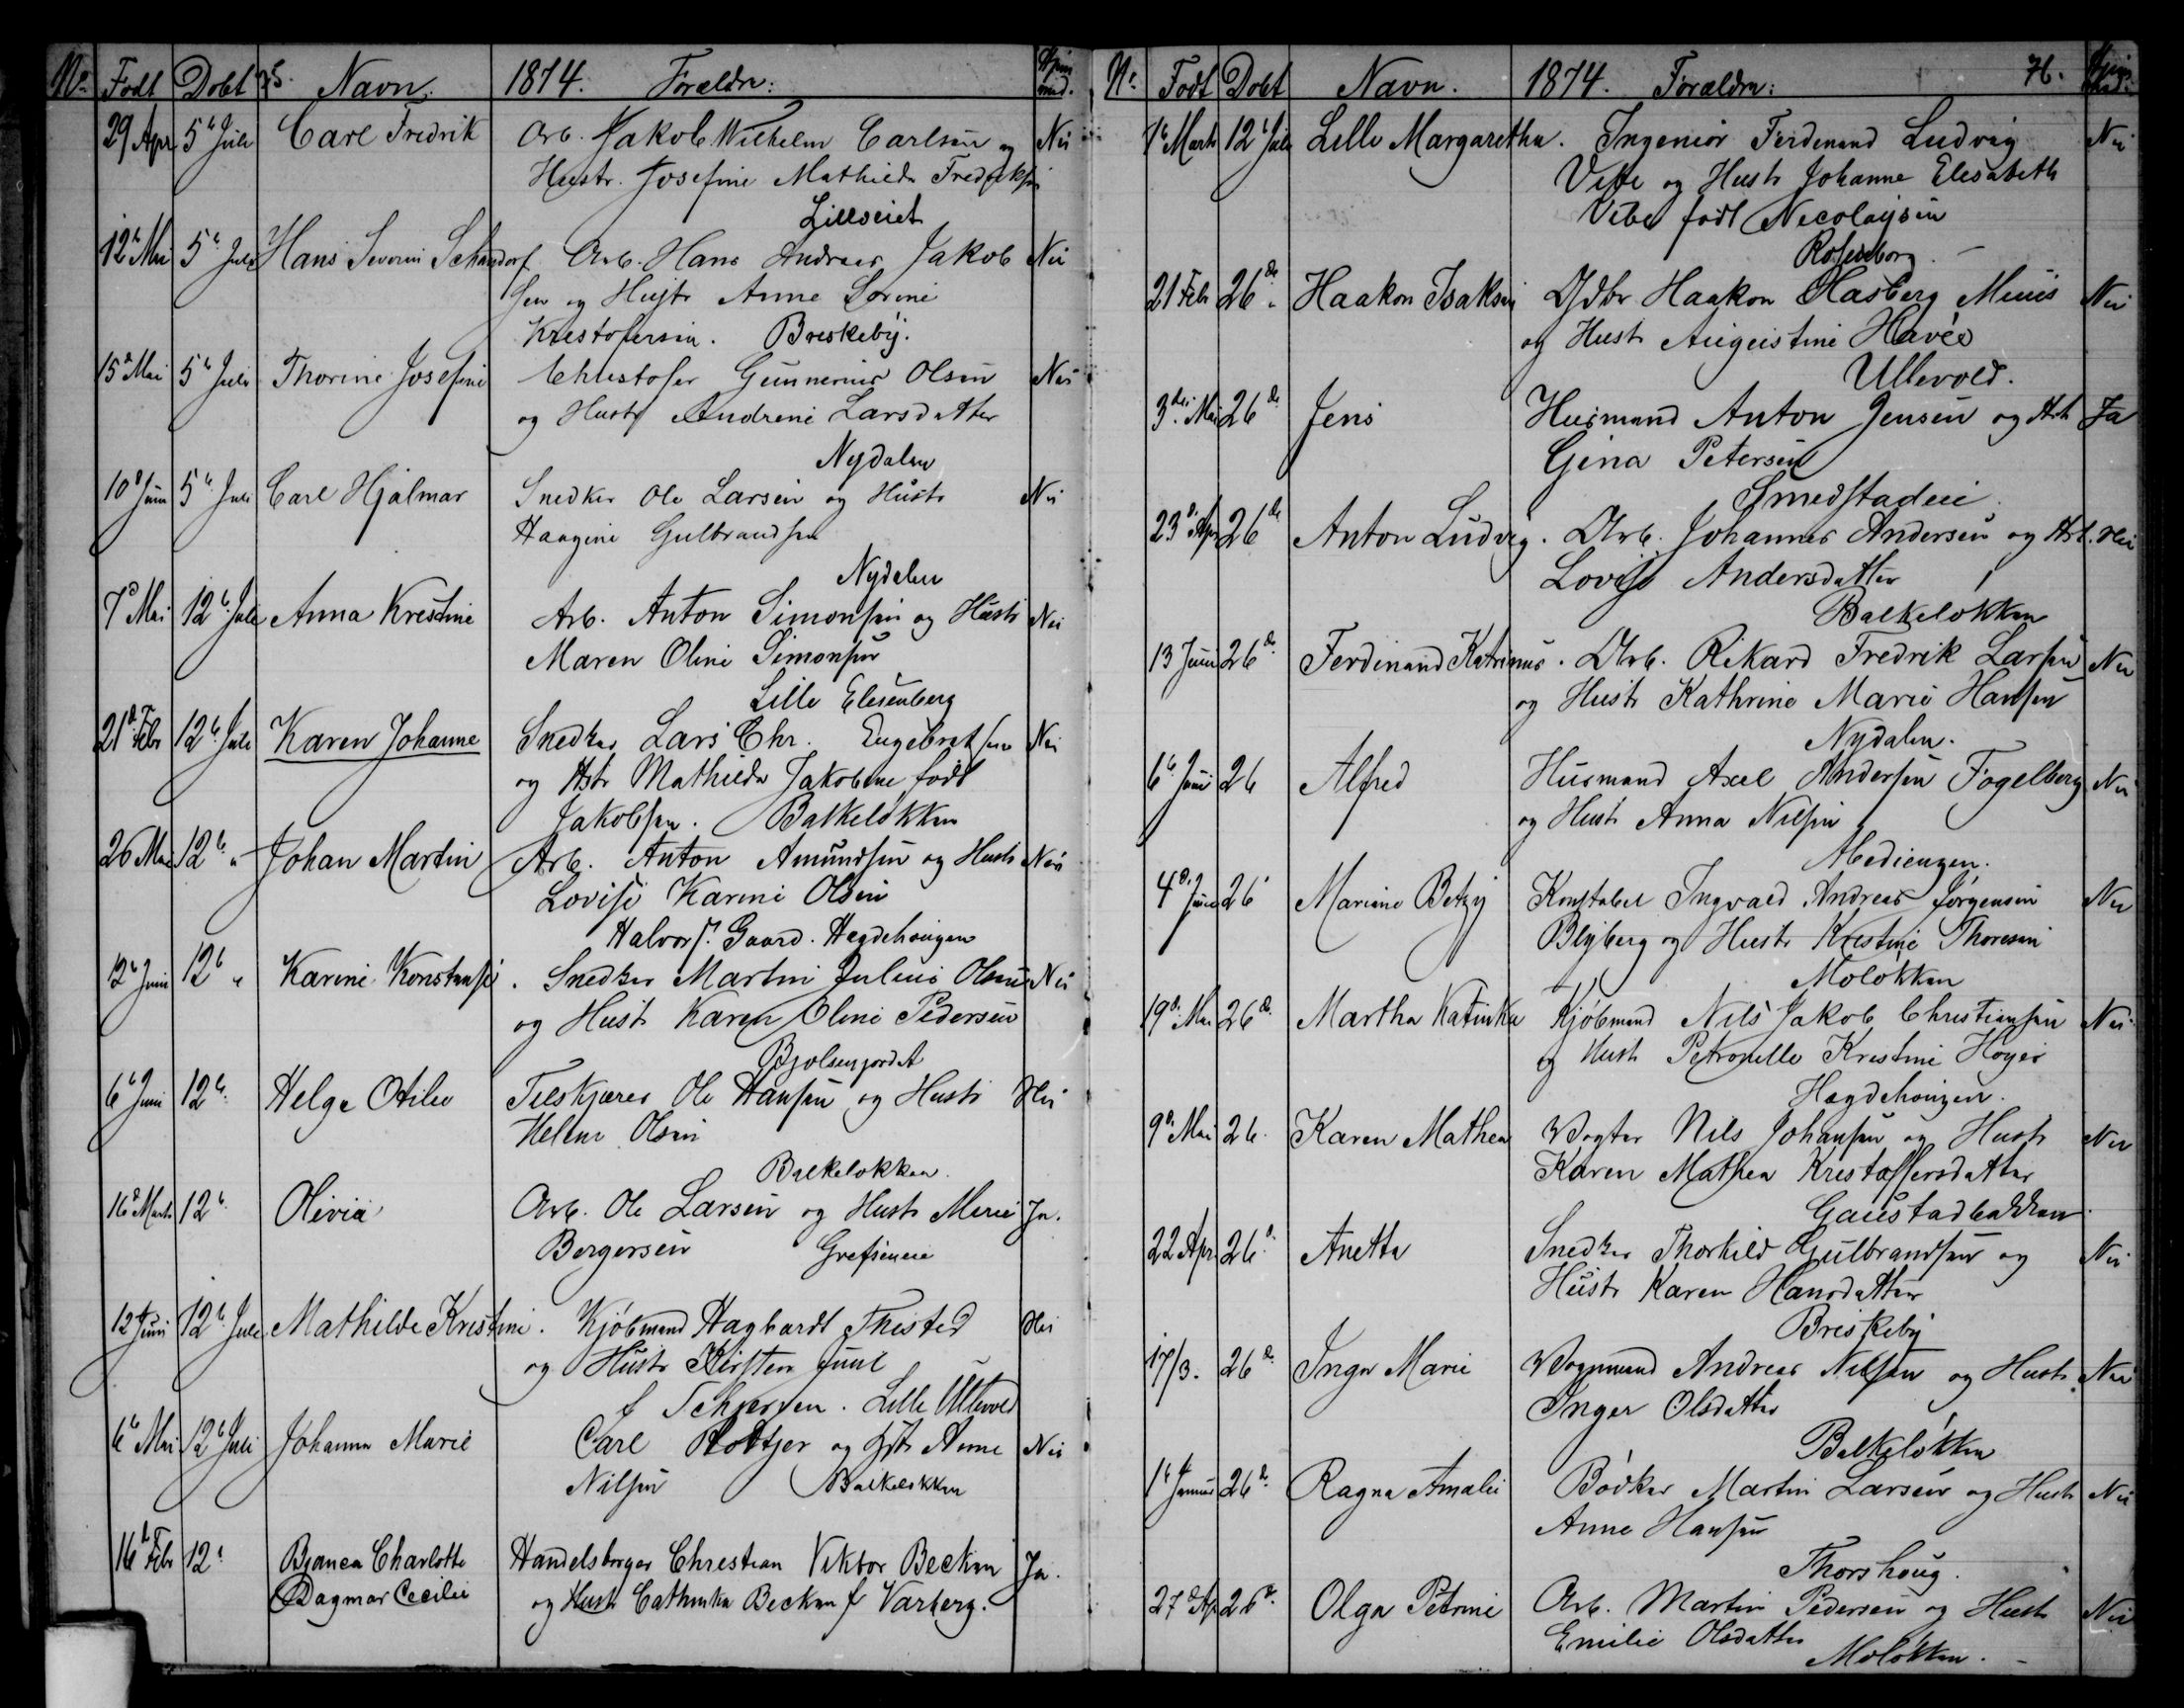 No. Født Døbt 75. Navn. 1874. Forældre: Hjem. med.
29 Apr 5te Juli Carl Fredrik Arb. Jakob Wilhelm Carlsen og Nei
Hustr. Josefine Mathilde Fredriksen
Lillseiet
12te Mai 5te Juli Hans Severin Schandorf Arb. Hans Andreas Jakob Nei
sen og Hustr Anne Lovine
Kristofersen. Breskeby.
15de Mai 5te Juli Thorine Josefine Christofer Gunnerius Olsen Nei
og Hustr Andrine Larsdatter
Nydalen
10de Juni 5te Juli Carl Hjalmar Snedker Ole Larsen og Hustr Nei
Haagine Gulbrandsen
Nydalen
7de Mai 12te Juli Anna Krestine Arb. Anton Simonsen og Hustr Nei
Maren Oline Simonsen
Lille Elesenberg
21de Febr 12te Juli Karen Johanne Snedker Lars Chr. Engebretsen Nei
og Hstr Mathilde Jakobine født
Jakobsen. Balkeløkken
26 Mai 12te " Johan Martin Arb. Anton Amundsen og Hustr Nei
Lovise Karine Olsen
Halvors. Gaard. Hegdehaugen
12te Juni 12te " Karine Konstanse. Snedker Martin Julius Olsen Nei
og Hustr Karen Oline Pedersen
Bjølsenjordet
6te Juni 12te Helga Otilie Filskjærer Ole Hansen og Hustr Nei
Helene Olsen
Balkeløkken.
16de Marts 12te Olivia Arb. Ole Larsen og Hustr Marie Ja.
Bergersen Grefseneie
12te Juni 12te Juli Mathilde Kristine. Kjøbmand Hagbardt Thisted Nei
og Hustr Kirsten Juul
f Lille Ullevol
6te Mai 12te Juli Johanna Marie Carl Røttjer og Hstr Anne Nei
Nilsen Balkeløkken
16de Febr 12te Bianca Charlotte Handelsborger Christian Viktor Beckm Ja.
Dagmar Cecilie og Hustr Cathinka Beckm f Varberg.
No. Født Døbt Navn. 1874. Forældre: 76. Hjem. med.
1te Marts 12te Juli Lilli Margaretha. Ingeniør Ferdinand Ludvig Nei
Vibe og Hustr Johanne Elisabeth
Vibe født Nicolaysen
Rosenborg.
21 Febr 26de " Haakon Isaksen Gdbr Haakon Hasberg Muus Nei
og Hustr Augustine Havée
Ullevold.
3die Mai 26de Jens Husmand Anton Jensen og Hstr Ja
Gina Petersen
Smedstadeie
23de Apr 26de Anton Ludvig. Arb. Johannes Andersen og Hst. Nei
Lovise Andersdatter
Balkeløkken
13 Juni 26de Ferdinand Katrinus. Arb. Rikard Fredrik Larsen Nei
og Hustr Kathrine Marie Hansen
Nydalen.
6te Juni 26 Alfred Husmand Axel Andersen Fogelberg Nei
og Hustr Anna Nilsen
Abediengen.
4de Juni 26 Marine Betzy Konstabel Ingvald Andreas Jørgensen Nei
Blyberg og Hustr Kristine Thoresen
Moløkken
19de Mai 26de Martha Katinka Kjøbmand Nils Jakob Christiansen Nei
og Hustr Petronelle Kristine Høyer
Hægdehougen.
9de Mai 26. Karen Mathea Vogter Nils Johansen og Hustr Nei
Karen Mathea Kristoffersdatter
Gaustadbakken
22 Apr 26de Anetta Snedker Thorkild Gulbrandsen og Nei
Hustr Karen Hansdatter
Briskeby
17/3. 26de Inga Marie Vognmand Andreas Nilsen og Hustr Nei
Inger Olsdatter
Balkeløkken
1te Januar 26de Ragna Amalie Bødker Martin Larsen og Hustr Nei
Anne Hansen
Thorshoug.
27de Ap 26de Olga Petrine Arb. Martin Pedersen og Hustr Nei
Emilie Olsdatter
Moløkken.